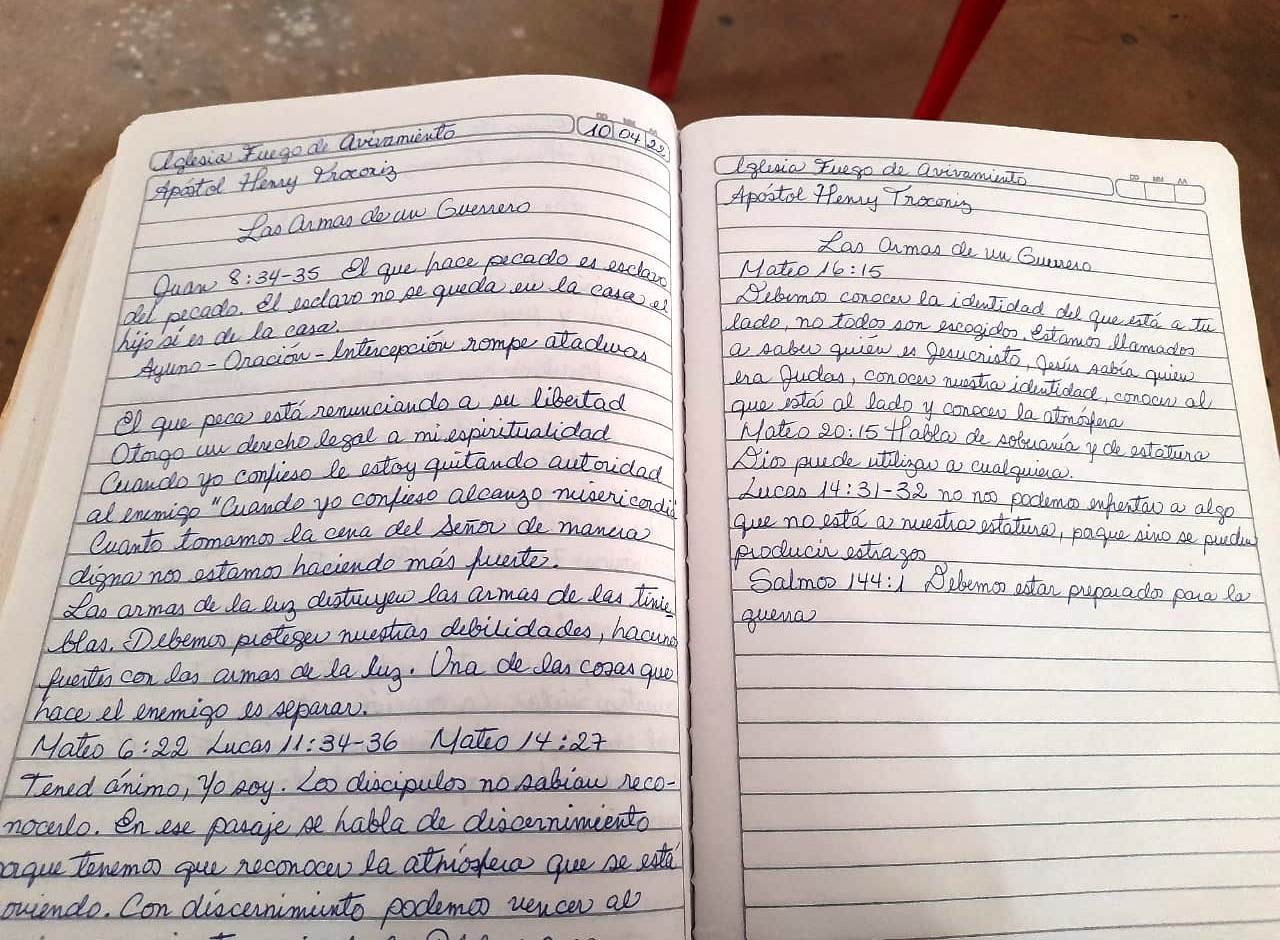 Iglesia Fuego de Avivamiento
DD MM AA
10 04 22
Apóstol Henry Trocoriz
Las Armas de un Guerrero
Juan 8:34-35 El que hace pecado es esclavo
del pecado. El esclavo no se queda en la casa el
hijo sí es de la casa.
Ayuno - Oración - Intercepción rompe ataduras
El que peca está renunciando a su libertad
Otorgo un derecho legal a mi espiritualidad
Cuando yo confieso le estoy quitando autoridad
al enemigo "Cuando yo confieso alcanzo misericordia
Cuanto tomamos la cena del Señor de manera
digna nos estamos haciendo más fuerte.
Las armas de la luz destruyen las armas de las tinie
blas. Debemos proteger nuestras debilidades, hacernos
fuertes con las armas de la luz. Una de las cosas que
hace el enemigo es separar.
Mateo 6:22 Lucas 11:34-36 Mateo 14:27
Tened ánimo, Yo soy. Los discipulos no sabían reco-
nocerlo. En ese pasaje se habla de discernimiento
orque tenemos que reconocer la atmósfera que se está
oviendo. Con discernimiento podemos vencer al
Iglesia Fuego de Avivamiento
DD MM AA
Apóstol Henry Troconiz
Las Armas de un Guerrero
Mateo 16:15
Debemos conocer la identidad del que está a tu
lado, no todos son escogidos, Estamos llamados
a saber quién es Jesucristo, Jesús sabía quien
era Judas, conocer nuestra identidad, conocer al
que está al lado y conocer la atmósfera
Mateo 20:15 Habla de soberanía y de estatura
Dios puede utilizar a cualquiera.
Lucas 14:31-32 no nos podemos enfrentar a algo
que no está a nuestra estatura, porque sino se pueden
producir estragos
Salmos 144:1 Debemos estar preparados para la
guerra